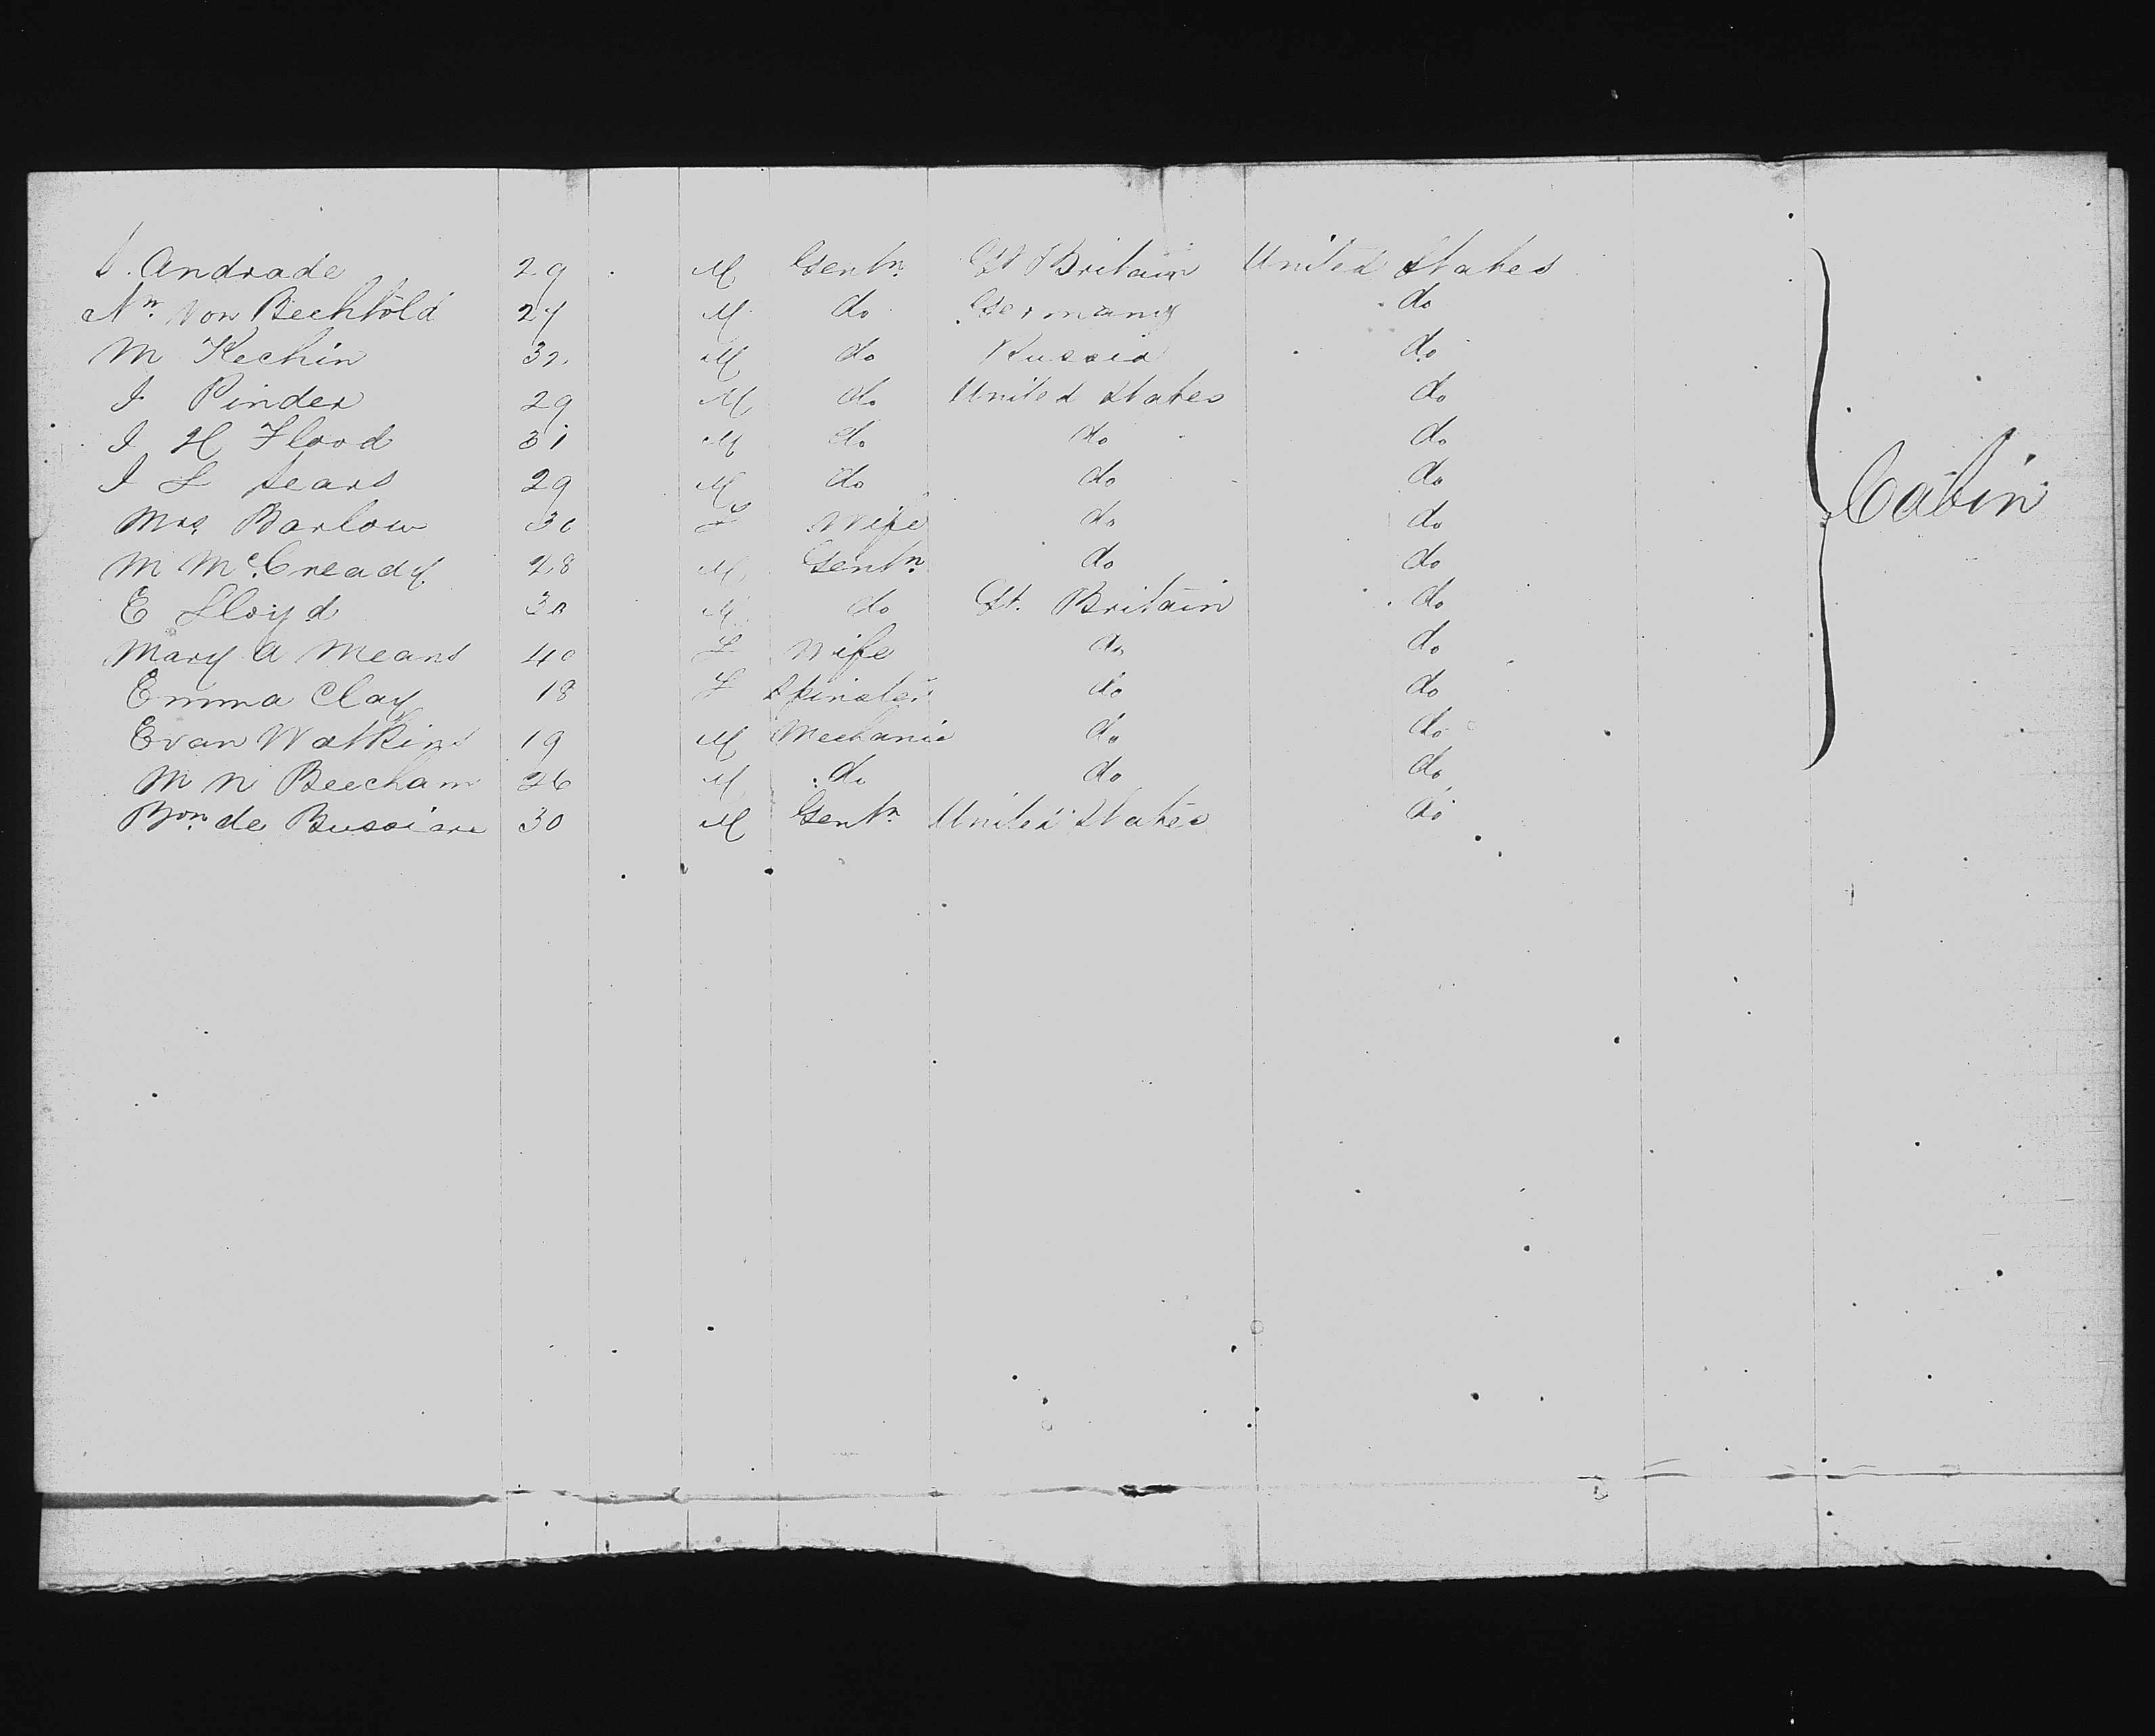 S. Andrade 29 M Gentn. Gt Britain United States
Nr. von Bechtold 24 M do Germany do
M Kechin 32 M do Russia do
J Pinder 29 M do United States do
J H Flood 31 M do do do
J L Sears 29 M do do do
Mrs Barlow 30 F Wife do do
M McCready 28 M Gentn. do do
E Lloyd 30 M do Gt. Britain do
Mary A Means 40 F Wife do do
Emma Clay 18 F Spinster do do
Evan Watkins 19 M Mechanic do do
M N Beecham 26 M do do do
Bon. de Bussiere 30 M Gentn United States do
Cabin